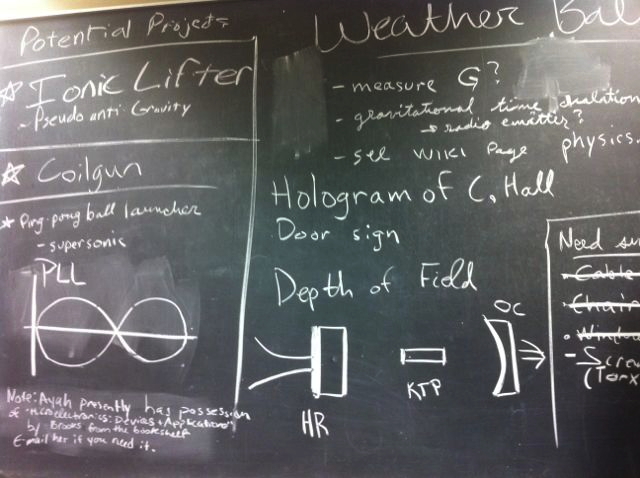 Potential Projects
☆ Ionic Lifter
- Pseudo anti-Gravity
☆ Coilgun
★ Ping-pong ball launcher
- supersonic
PLL
Note: Ayah presently has possession
of "Microelectronics: Devices + Applications"
by Brooks from the bookshelf
E-mail her if you need it.
Weather Bal
- measure G?
- gravitational time dialation
→ radio emitter?
- see wiki page physics.
Hologram of C. Hall
Door sign
Depth of Field
HR
KTP
OC
Need
Cable
Chain
Window
- Screw
(Torx